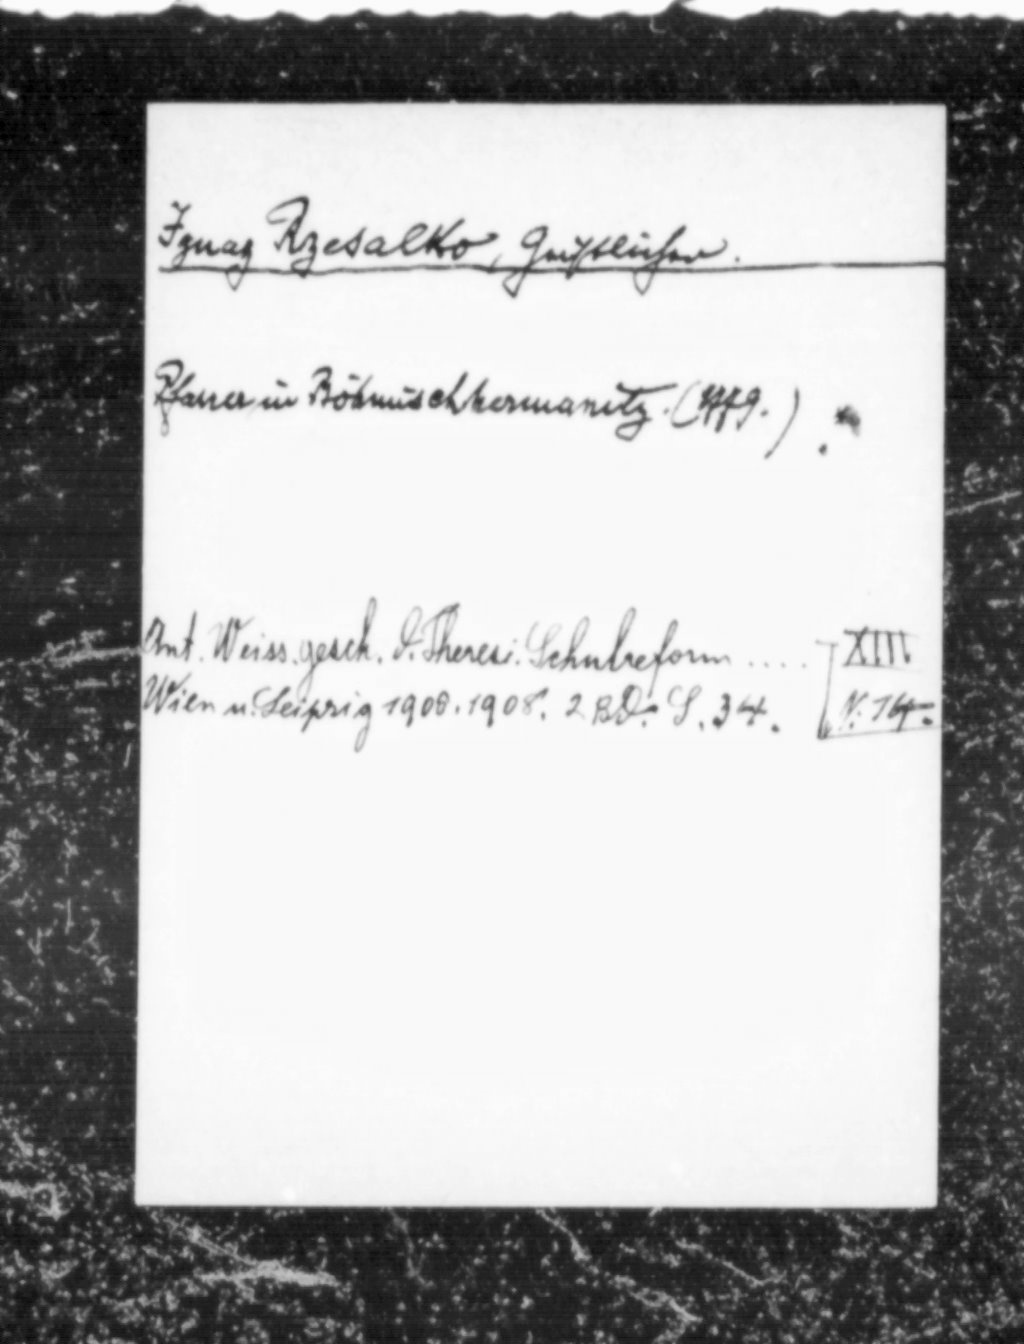 Ignaz Rzesalko, Geistlicher.
Pfarrer in Böhmischhermanitz. (1779.)
Ant. Weiss. gesch. d. Theresi. Schulreform ..... XIII.
Wien u. Leipzig 1908. 1908. 2 BD. S. 34. N. 164.